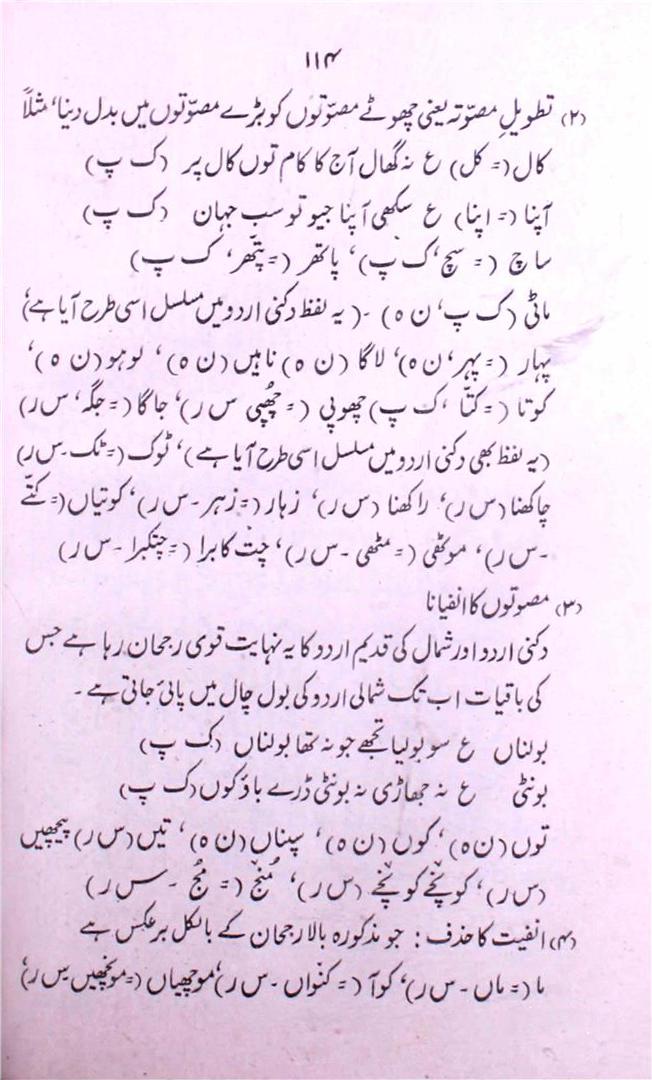 ۱۱۴
(۲) تطویلِ مصوّتہ یعنی چھوٹے مصوّتوں کو بڑے مصوّتوں میں بدل دینا، مثلاً
کال (= کل) ع نہ گھال آج کا کام توں کال پر (ک پ)
آپنا (= اپنا) ع سکھی آپنا جیو تو سب جہان (ک پ)
ساچ (= سچ، ک پ)، پاتھر (= پتّھر، ک پ)
ماٹی (ک پ، ن ہ) ۔ (یہ لفظ دکنی اردو میں مسلسل اسی طرح آیا ہے)،
پہار (= پہر، ن ہ)، لاگا (ن ہ) ناہیں (ن ہ)، لوہو (ن ہ)،
کوتا (= کتّا، ک پ) چھوپی (= چُھپی س ر)، جاگا (= جگہ، س ر)
(یہ لفظ بھی دکنی اردو میں مسلسل اسی طرح آیا ہے)، ٹوک (= ٹک ۔ س ر)
چاکھنا (س ر)، راکھنا (س ر)، زہار (= زہر ۔ س ر)، کوتیاں (= کتّے
۔ س ر)، موٹھی (= مٹھی ۔ س ر)، چت کابرا (= چتکبرا ۔ س ر)
(۳) مصوتوں کا انفیانا
دکنی اردو اور شمال کی قدیم اردو کا یہ نہایت قوی رجحان رہا ہے جس
کی باقیات اب تک شمالی اردو کی بول چال میں پائی جاتی ہے ۔
بولناں ع سو بولیا تجھے جو نہ تھا بولناں (ک پ)
بونٹی ع نہ جھاڑی نہ بونٹی ڈرے باؤ کوں (ک پ)
توں (ن ہ)، کوں (ن ہ)، سپناں (ن ہ)، تیں (س ر) پیچھیں
(س ر)، کونچے کونچے (س ر)، مُنج (= مُج ۔ س ر)
(۴) انفیت کا حذف : جو مذکورہ بالا رجحان کے بالکل برعکس ہے
ما (= ماں ۔ س ر)، کوآ (= کنواں ۔ س ر)، موچھیاں (= مونچھیں س ر)،